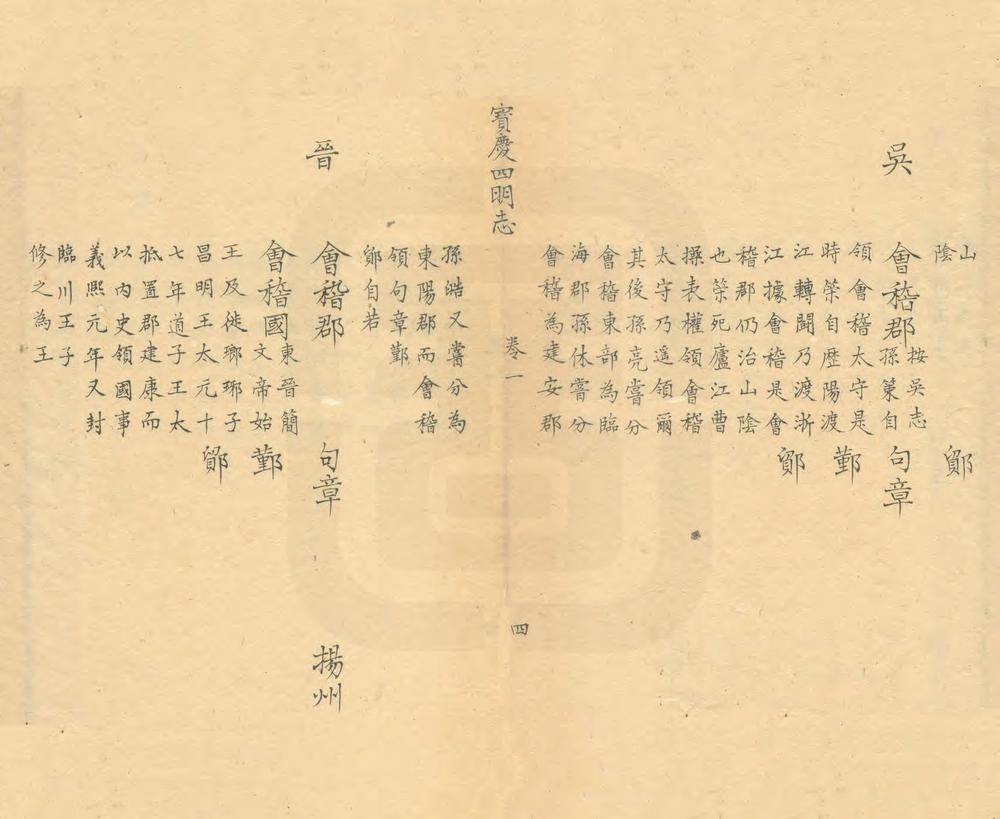 山
陰
鄮
吳
會稽郡
按吳志
孫策自
句章
領會稽太守是
時策自歴陽渡
鄞
江轉鬭乃渡浙
江據會稽是會
鄮
稽郡仍治山陰
也策死廬江曹
操表權領會稽
太守乃遥領爾
其後孫亮嘗分
會稽東部為臨
海郡孫休嘗分
會稽為建安郡
寶慶四明志
卷一
四
孫皓又嘗分為
東陽郡而會稽
領句章鄞
鄮自若
晉
會稽郡
句章
揚州
會稽國
東晉簡
文帝始
鄞
王及徙瑯琊子
昌明王太元十
鄮
七年道子王太
抵置郡建康而
以内史領國事
義熙元年又封
臨川王子
修之為王